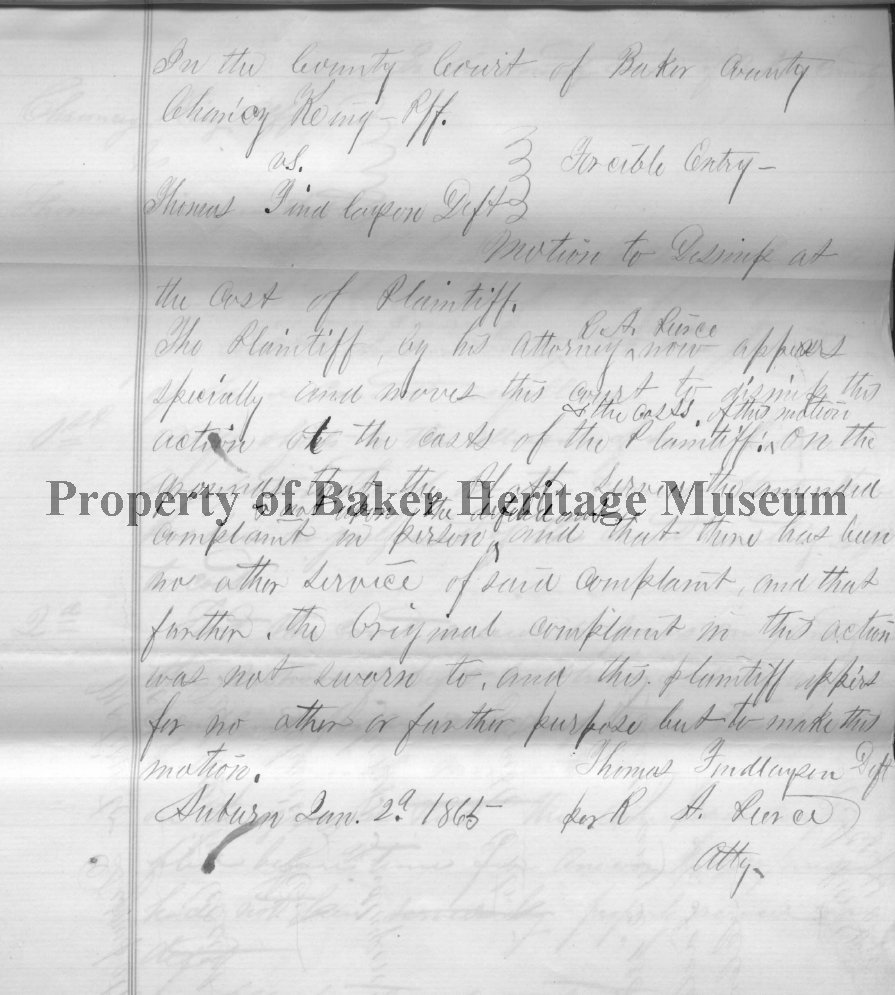 In the County Court of Baker County
Chancy King - Plff.
vs.
Forcible Entry -
Thomas Findlayson Deft
Motion to Dismiss at
the Cost of Plaintiff.
R. A. Pierce
The Plaintiff, by his attorney now appears
specially and moves this court to dismiss this
& the costs of this motion
action at the costs of the Plaintiff. On the
grounds that the Plaff served the amended
Property of Baker Heritage Museum
& not upon the defendant
complaint in person and that there has been
no other service of said complaint, and that
further. the Original complaint in this action
was not sworn to, and this plaintiff appirs
for no other or further purpose but to make this
motion.
Thomas Findlayson Deft
Auburn Jan. 2d. 1865
per R A. Pierce
Atty.